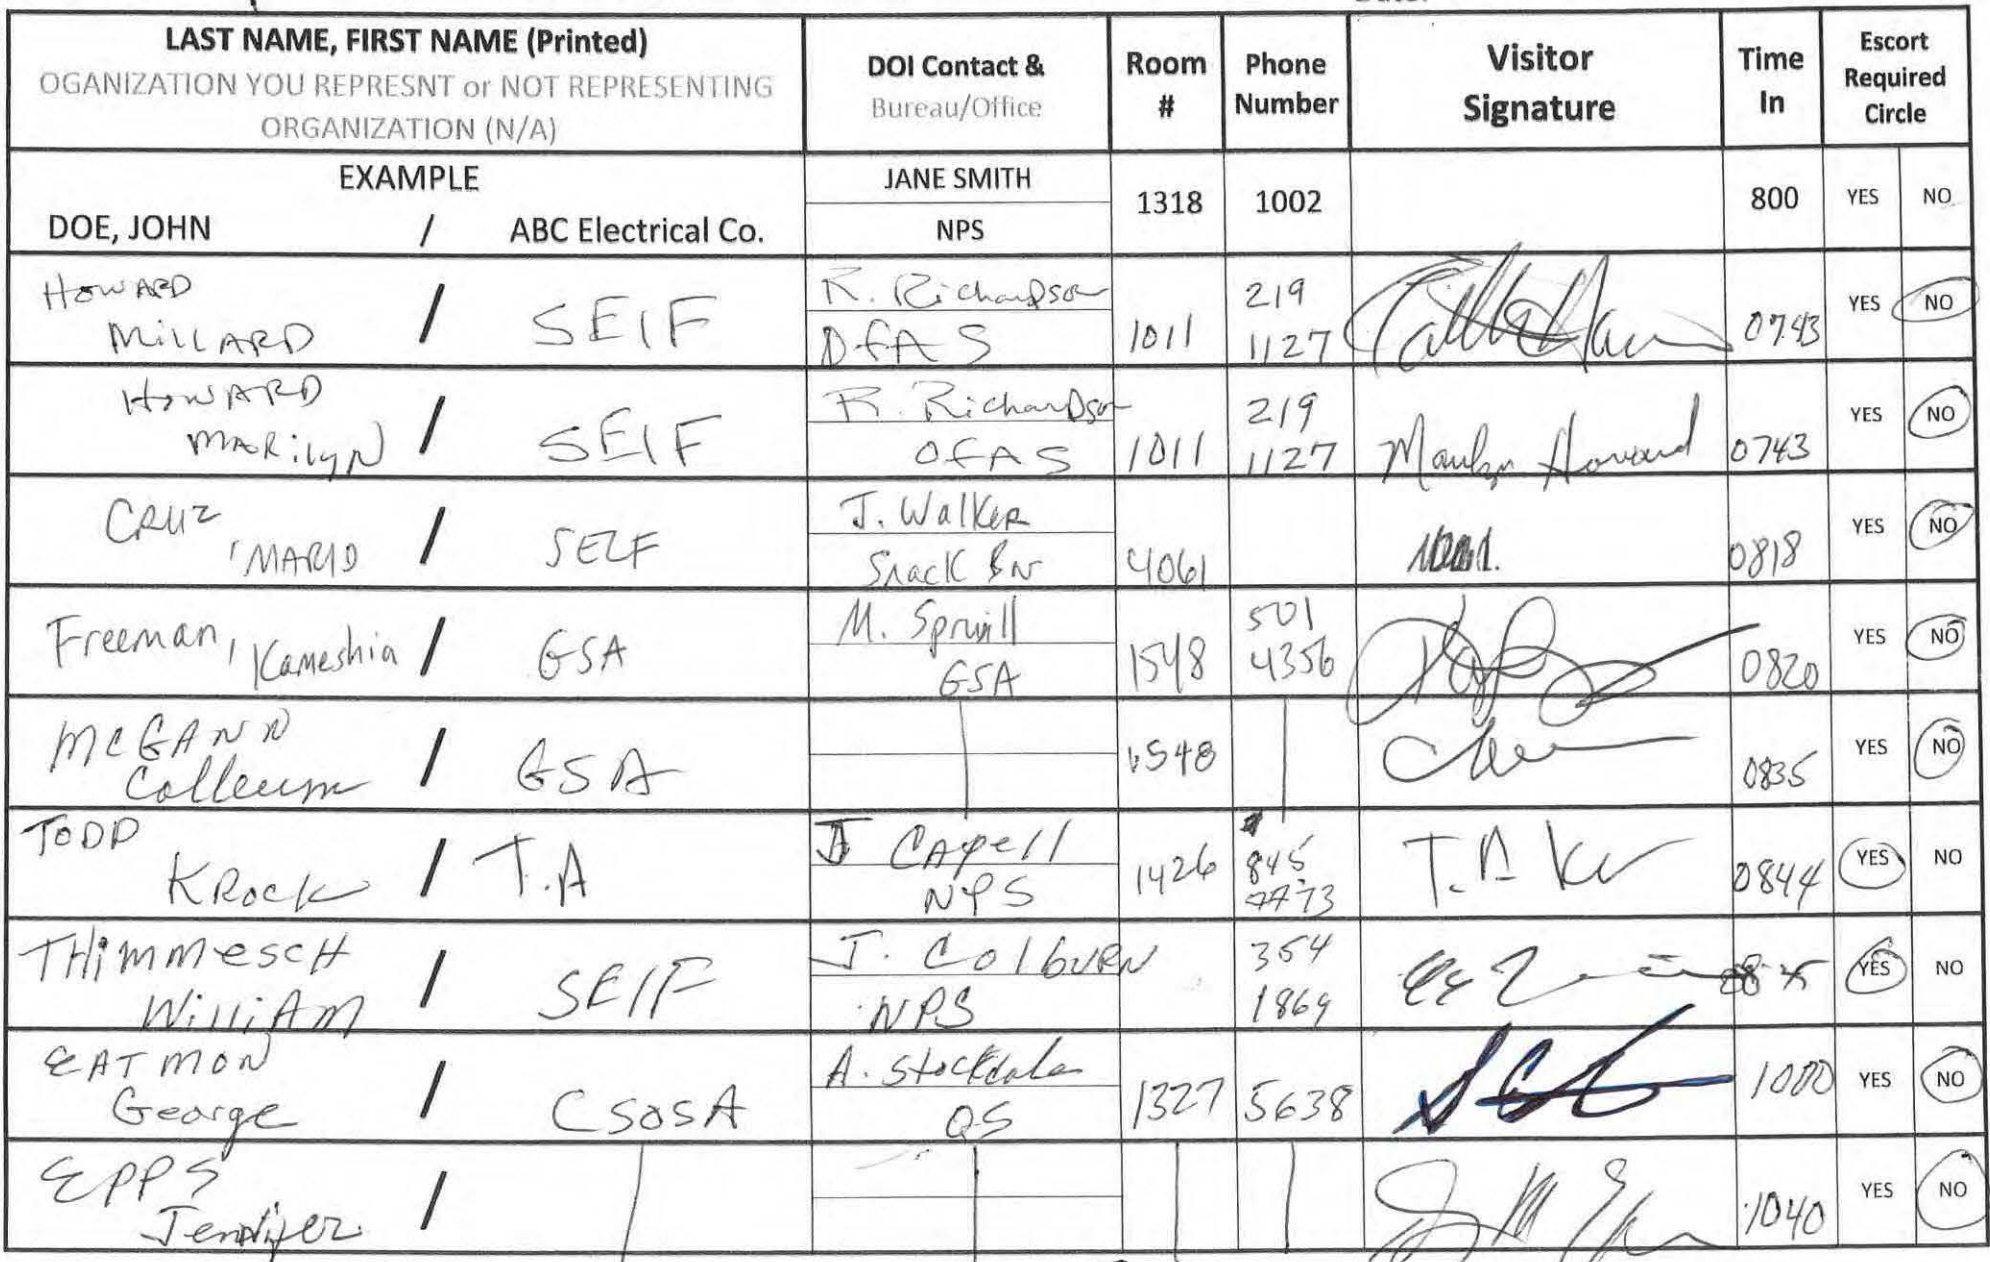 LAST NAME, FIRST NAME (Printed)
OGANIZATION YOU REPRESNT or NOT REPRESENTING
ORGANIZATION (N/A)
DOI Contact &
Bureau/Office
Room
#
Phone
Number
Visitor
Signature
Time
In
Escort
Required
Circle
EXAMPLE
DOE, JOHN / ABC Electrical Co.
JANE SMITH
NPS
1318
1002
800
YES NO
HOWARD
MILLARD / SELF
R. Richardson
OFAS
1011
219
1127
0743
YES NO
HOWARD
MARilyN / SELF
R. Richardson
OFAS
1011
219
1127
Marilyn Howard
0743
YES NO
CRUZ
, MARIO / SELF
J. Walker
Snack
4061
0818
YES NO
Freeman, Kameshia / GSA
M. Spruill
GSA
1548
501
4356
0820
YES NO
MCGANN
Colleen / GSA
1548
0835
YES NO
TODD
KRock / T.A
J Capell
NPS
1426
845
0844
YES NO
THimmescH
WilliAm / SELF
J. ColburN
NPS
354
1869
YES NO
EATMON
George / CSOSA
A. Stockdale
OS
1327
5638
1000
YES NO
EPPS
Jennifer /
1040
YES NO